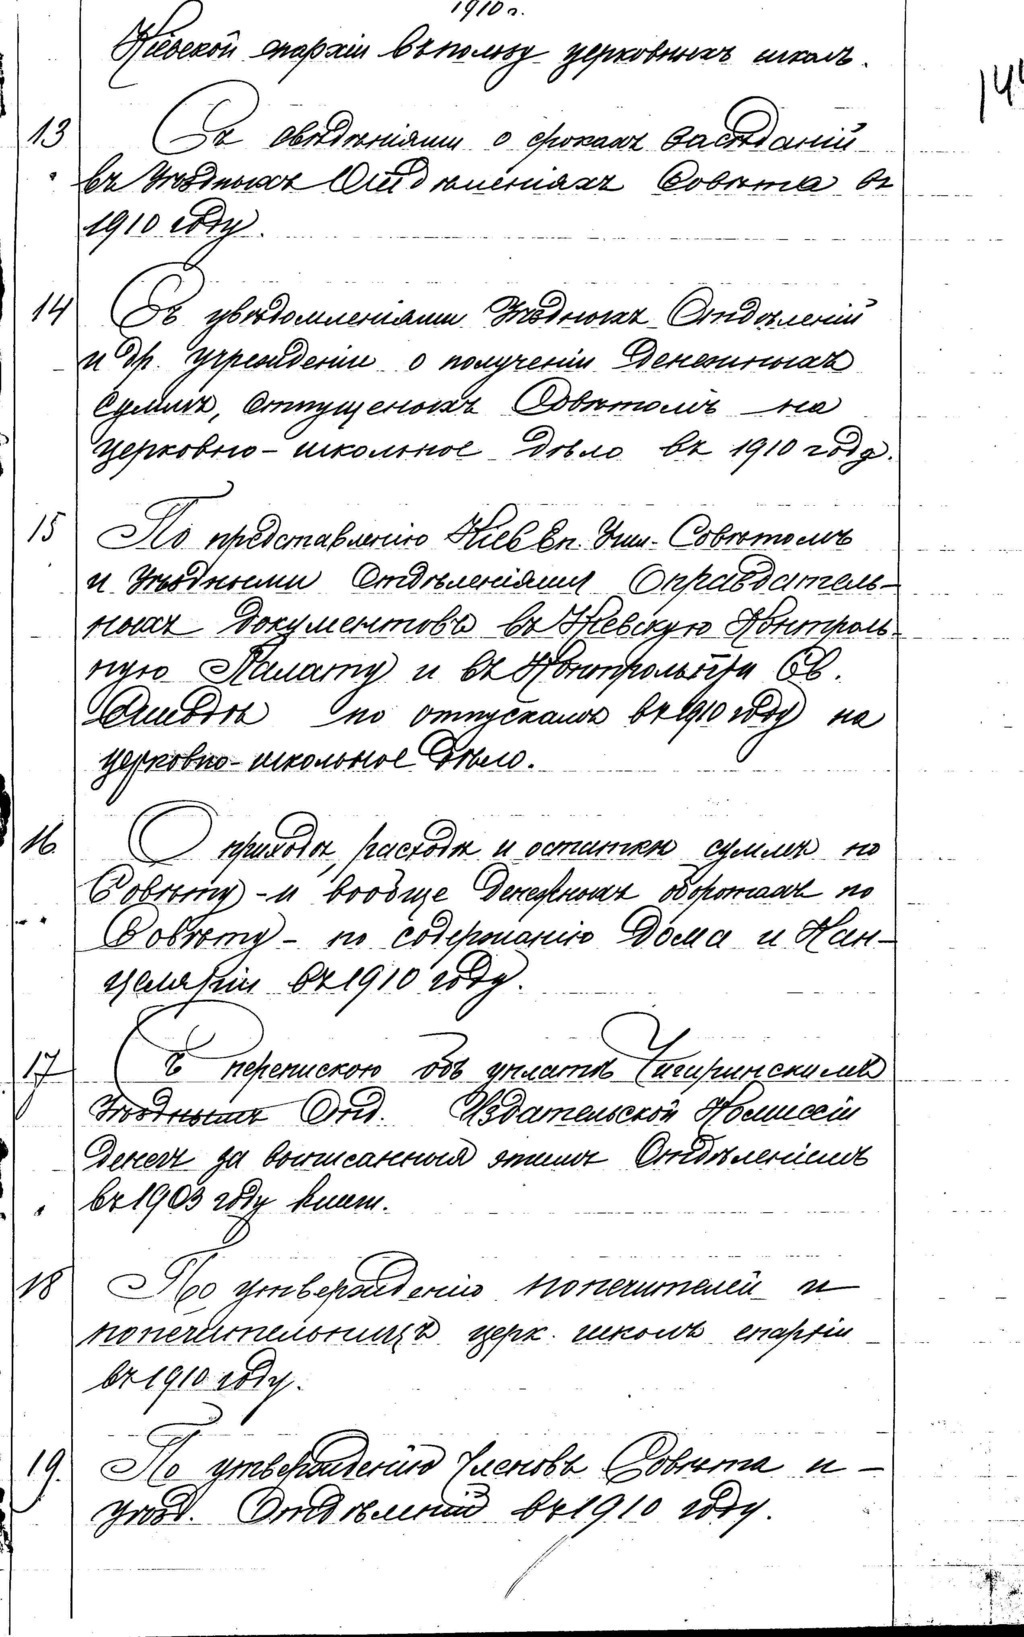 1910 г.
Кіевской епархіи въ пользу церковныхъ школъ.
144
13 Съ свѣдѣніями о срокахъ засѣданій
въ Уѣздныхъ Отдѣленіяхъ Совѣта въ
1910 году.
14 Съ увѣдомленіями Уѣздныхъ Отдѣленій
и др. учрежденій о полученіи денежныхъ
суммъ, отпущеныхъ Совѣтомъ на
церковно-школьное дѣло въ 1910 году.
15 По представленію Кіев Еп. Учил. Совѣтомъ
и Уѣздными Отдѣленіями Оправдатель-
ныхъ документовъ въ Кіевскую Контроль-
ную Палату и въ Контроль при Св.
Синодѣ по отпускамъ въ 1910 году на
церковно-школьное дѣло.
16 О приходѣ, расходѣ и остаткѣ суммъ по
Совѣту - и вообще денежныхъ оборотахъ по
Совѣту - по содержанію Дома и Кан-
целяріи въ 1910 году.
17 Съ перепискою объ уплатѣ Чигиринскимъ
Уѣзднымъ Отд. Издательской Комиссіи
денегъ за выписанныя этимъ Отдѣленіемъ
въ 1903 году книги.
18 По утвержденію попечителей и
попечительницъ церк. школъ епархіи
въ 1910 году.
19. По утвержденію Членовъ Совѣта и -
уѣзд. Отдѣленій въ 1910 году.